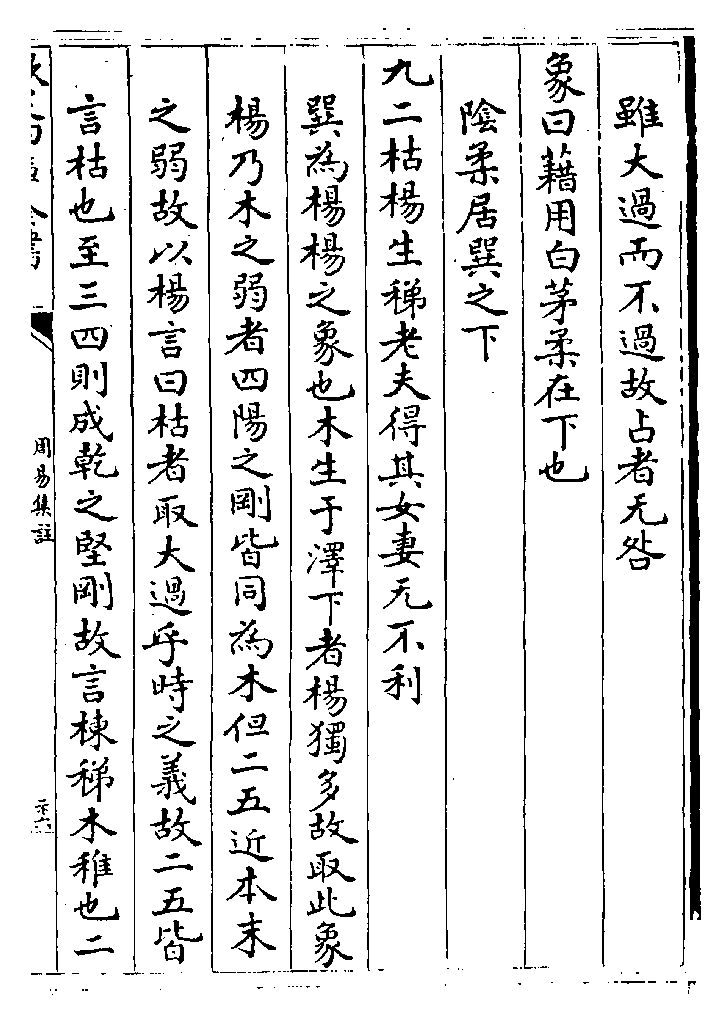 雖大過而不過故占者无咎
象曰藉用白茅柔在下也
陰柔居巽之下
九二枯楊生稊老夫得其女妻无不利
巽為楊楊之象也木生于澤下者楊獨多故取此象
楊乃木之弱者四陽之剛皆同為木但二五近本末
之弱故以楊言曰枯者取大過乎時之義故二五皆
言枯也至三四則成乾之堅剛故言棟稊木稚也二
周易集註